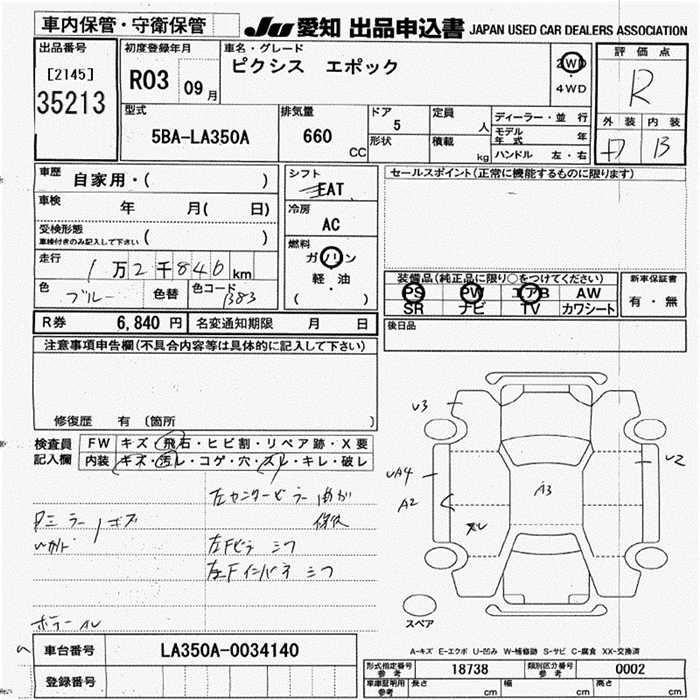 車内保管・守衛保管
JU 愛知 出品申込書 JAPAN USED CAR DEALERS ASSOCIATION
出品番号
[2145]
35213
初度登録年月
R03 09月
車名・グレード
ピクシス エポック
2WD
4WD
評価点
R
外装 内装
B
型式
5BA-LA350A
排気量
660 CC
ドア
5
形状
定員 人
積載 kg
ディーラー・並行
モデル年式 年
ハンドル 左・右
車歴
自家用・( )
車検 年 月( 日)
受検形態
車検付きのみ記入して下さい ( )
走行
1万2千846km
色 ブルー 色替 色コード B83
シフト
FAT
冷房
AC
燃料
ガソリン
軽・油
( )
セールスポイント(正常に機能するものに限ります)
装備品(純正品に限り○をつけてください)
PS PW エアB AW
SR ナビ TV カワシート
新車保証書
有・無
R券 6,840円 名変通知期限 月 日
後日品
注意事項申告欄(不具合内容等は具体的に記入して下さい)
修復歴 有 〔箇所 〕
検査員記入欄
FW キズ・飛石・ヒビ割・リペア跡・X要
内装 キズ・汚レ・コゲ・穴・スレ・キレ・破レ
左センターピラー曲がり
修復
ミラーキズ
左Fピラー シワ
左Fインパネ シワ
U3
UA4
A2
A3
U2
スペア
A-キズ E-エクボ U-凹み W-補修跡 S-サビ C-腐食 XX-交換済
車台番号 LA350A-0034140
登録番号
形式指定番号 参考 18738 類別区分番号 参考 0002
車庫証明用 参考 長さ cm 幅 cm 高さ cm